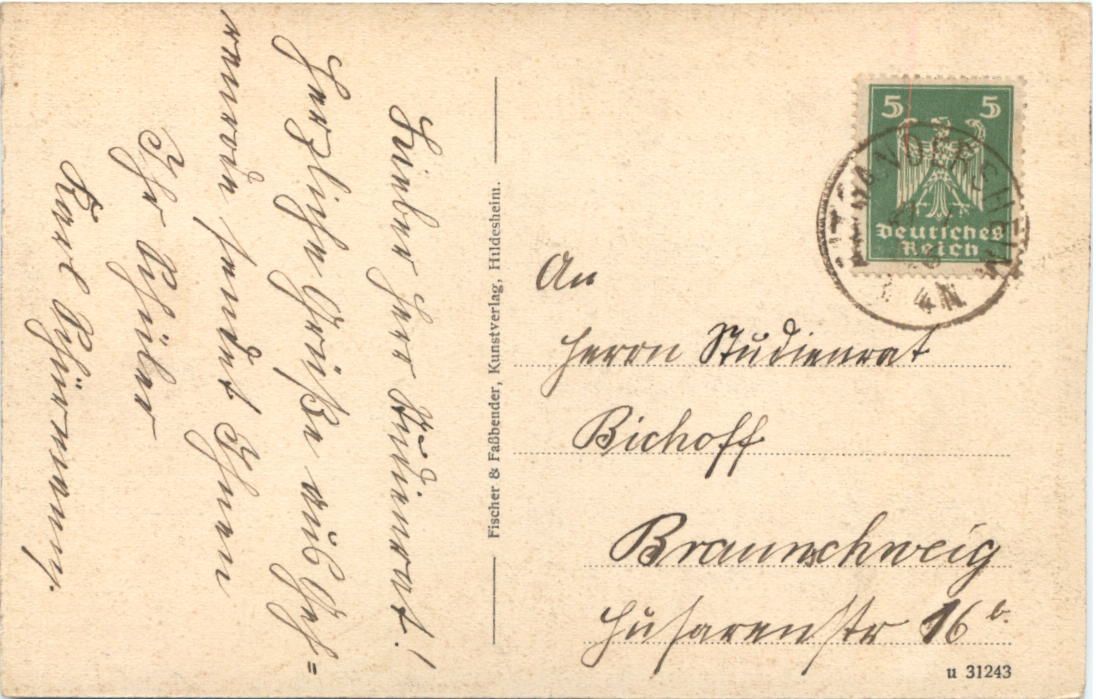 Lieber Herr Studienrat!
Herzliche Grüße aus
sendet Ihnen
Ihr Schüler
Karl
Fischer & Faßbender, Kunstverlag, Hildesheim.
5 5
Deutsches
Reich
GANDERSHEIM
4-5N
An
Herrn Studienrat
Bichoff
Braunschweig
Husarenstr 16b.
u 31243